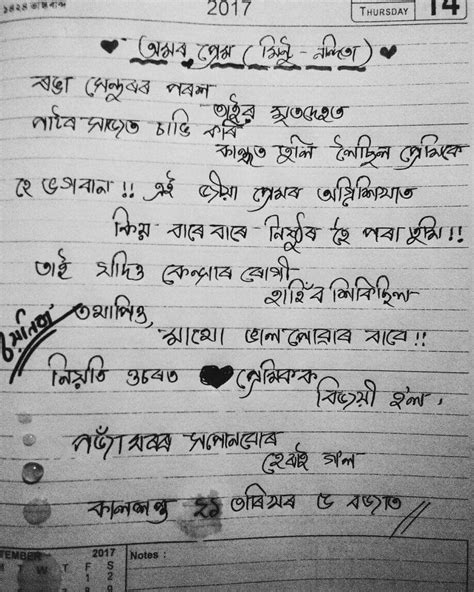 ১৪২৪ ভাস্কৰাব্দ
2017
THURSDAY
14
অমৰ প্ৰেম (মিন্টু - নন্দিতা)
ৰঙা সেন্দুৰৰ পৰশ
তাইৰ মৃতদেহত
পাটৰ সাজত চাঙি কৰি
কান্ধত তুলি লৈছিল প্ৰেমিকে
হে ভগবান !! এই জীয়া প্ৰেমৰ অগ্নিশিখাত
কিয় বাৰে বাৰে নিষ্ঠুৰ হৈ পৰা তুমি !!
তাই যদিও কেন্সাৰ ৰোগী
হাঁহিব শিকিছিল
তথাপিও,
মাথো ভাল পোৱাৰ বাবে !!
নিয়তি ওচৰত প্ৰেমিকক
বিজয়ী হ'ল,
পজাঁ ঘৰৰ সপোনবোৰ
হেৰাই গল
কালসন্ধ্যা ২১ তাৰিখৰ ৫ বজাত
TEMBER 2017
M T W T F S
1 2
8 9
Notes :